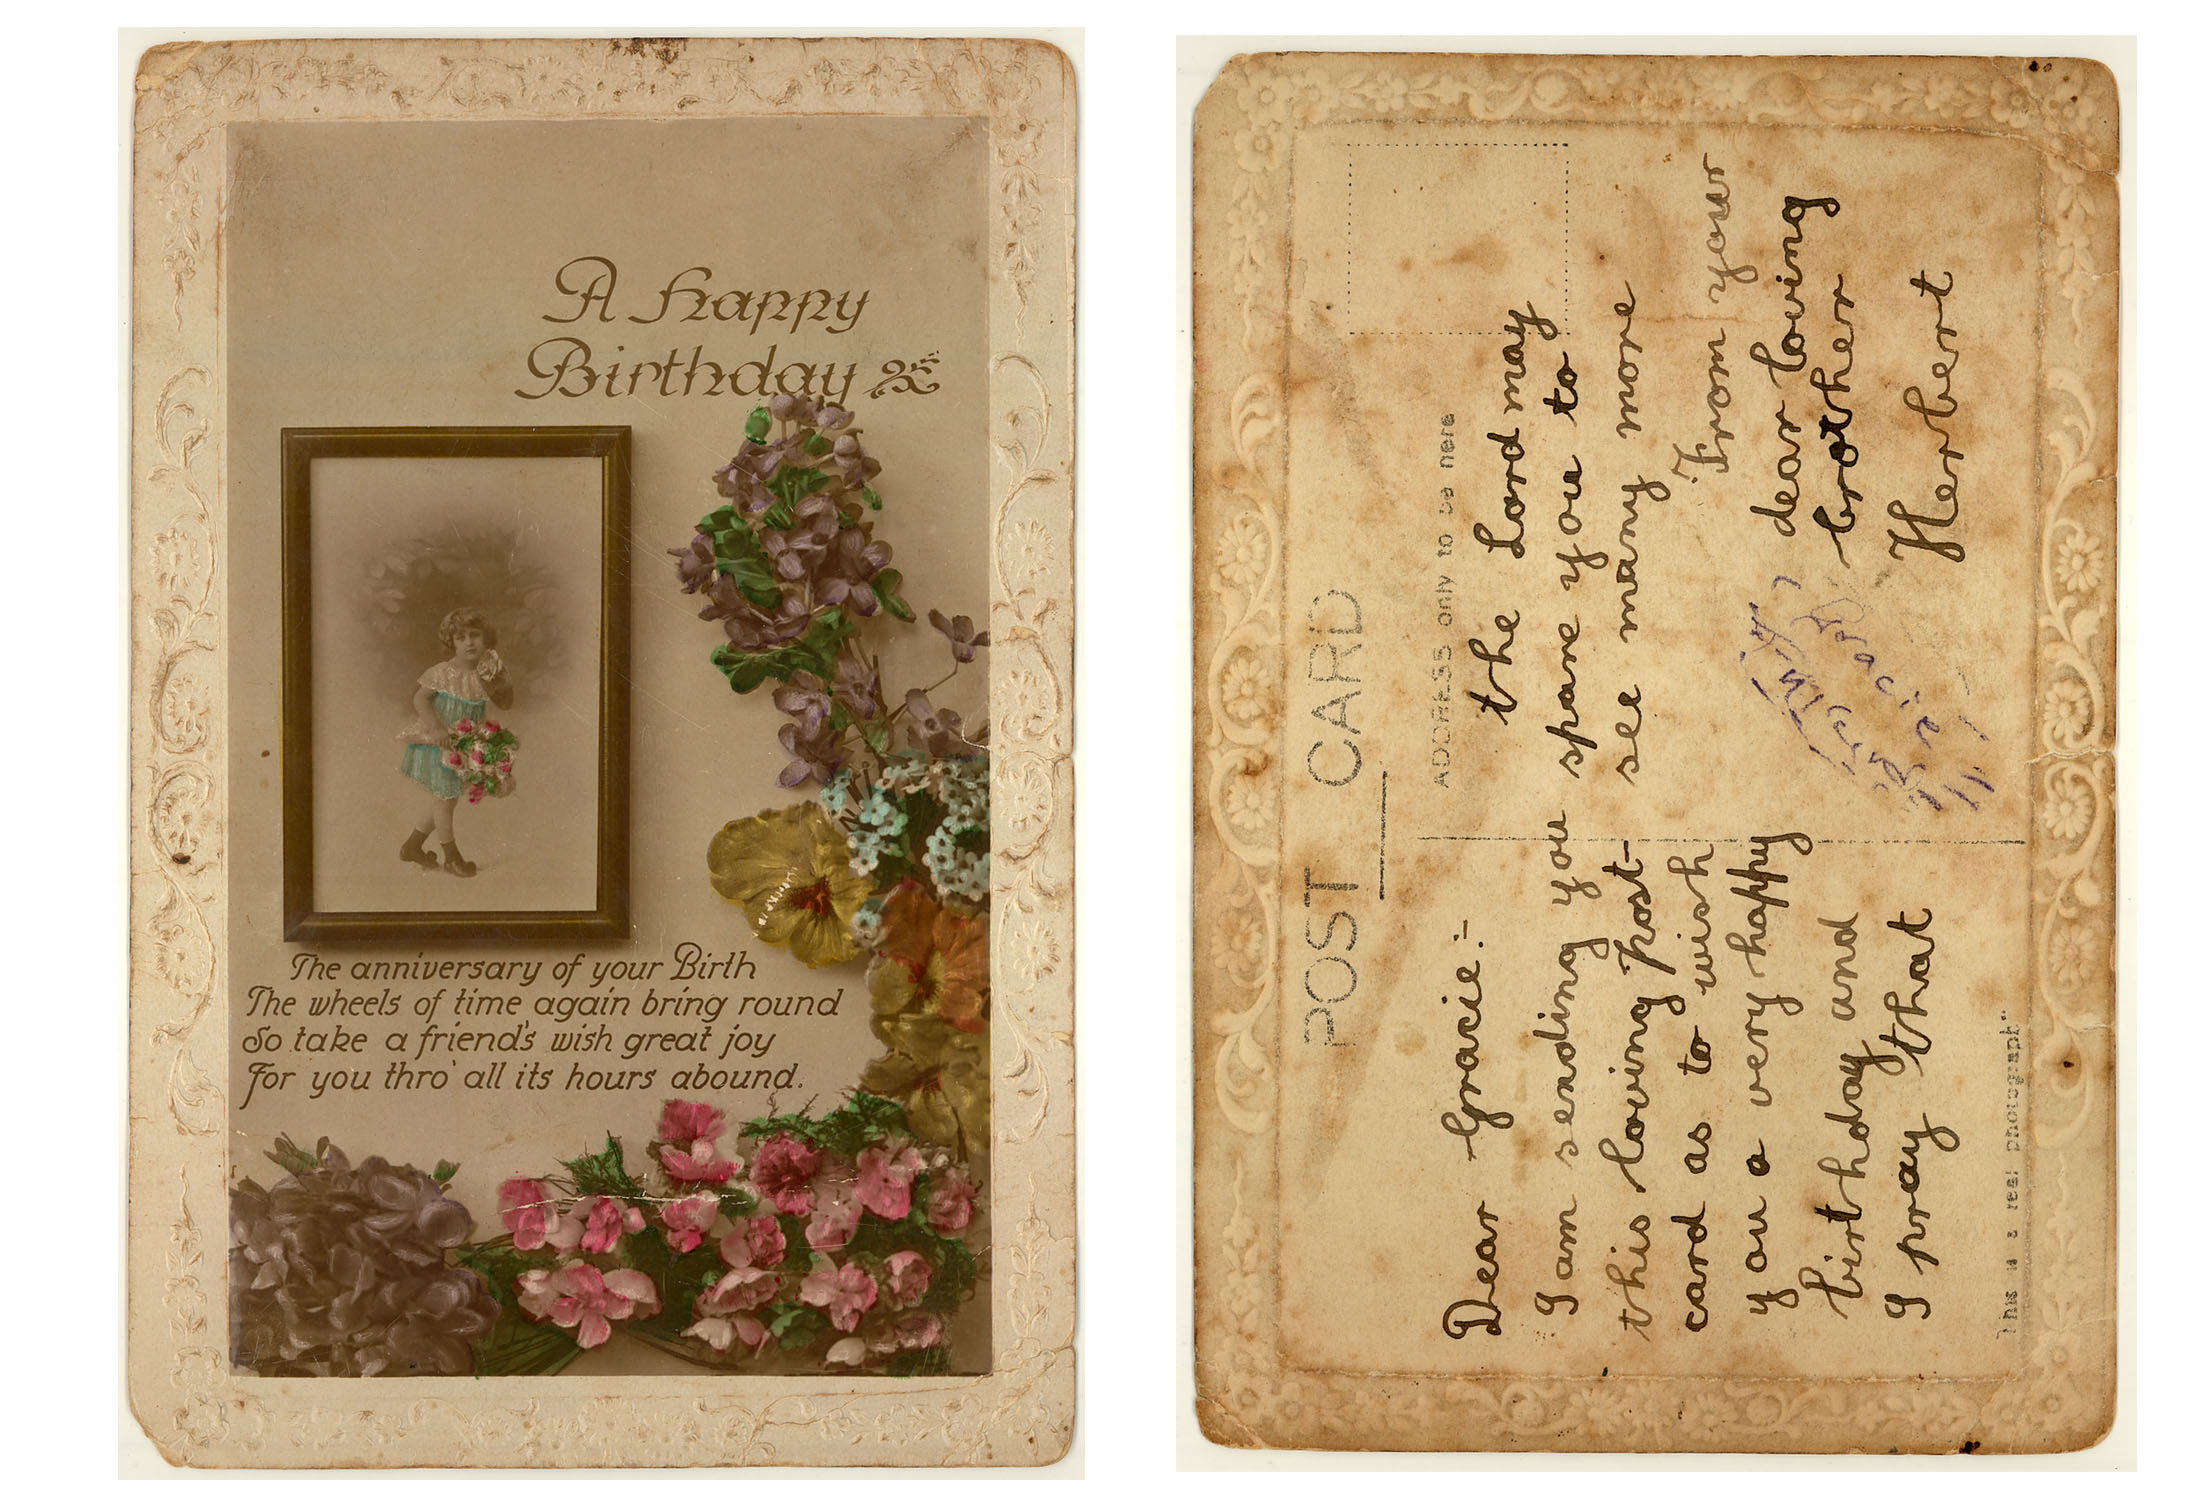 A Happy
Birthday
The anniversary of your Birth
The wheels of time again bring round
So take a friend's wish great joy
For you thro' all its hours abound.
POST CARD
ADDRESS only to be here
Dear Gracie:-
I am sending you
this loving post-
card as to wish
you a very happy
birthday and
I pray that
the Lord may
spare you to
see many more
From your
dear loving
brother
Herbert
This is a real photograph"